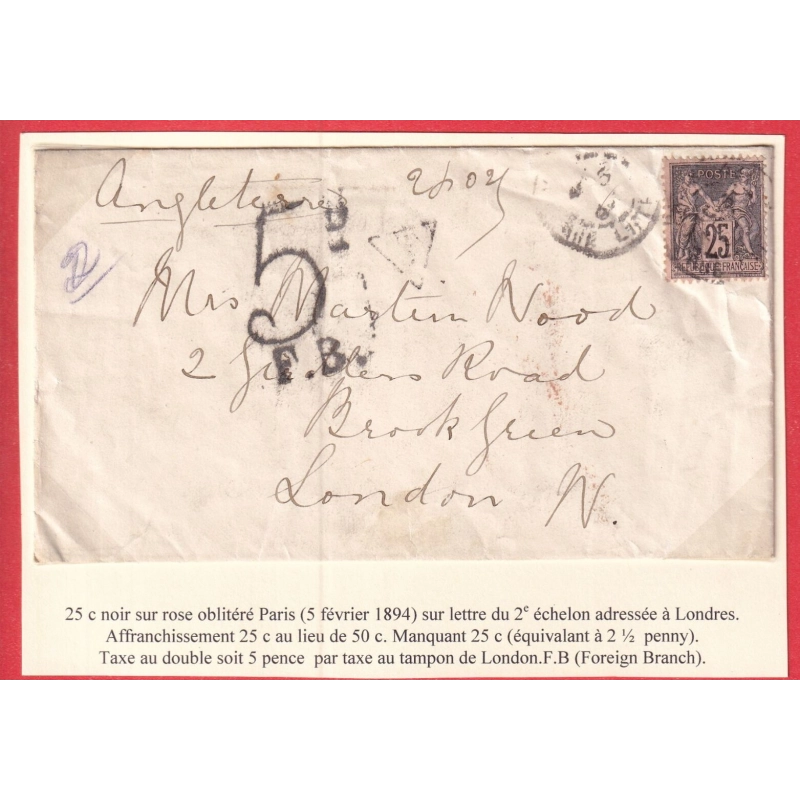 Angleterre
POSTE
25
RÉPUBLIQUE FRANÇAISE
2
5
F.B.
T
Mrs Martin Wood
2 Road
Brook Green
London W.
25 c noir sur rose oblitéré Paris (5 février 1894) sur lettre du 2e échelon adressée à Londres.
Affranchissement 25 c au lieu de 50 c. Manquant 25 c (équivalant à 2 ½ penny).
Taxe au double soit 5 pence par taxe au tampon de London.F.B (Foreign Branch).